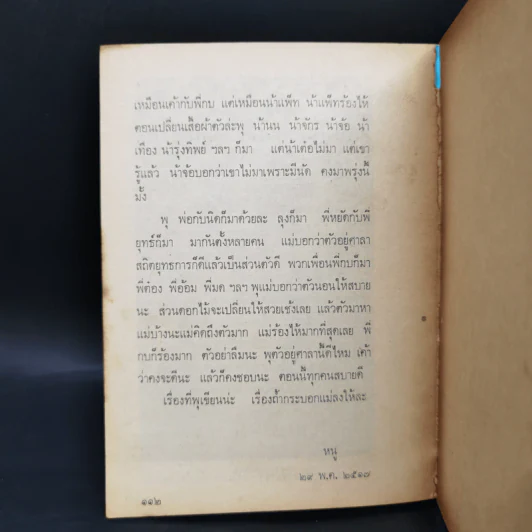 เหมือนเค้ากับพี่กบ แต่เหมือนน้าแพ็ท น้าแพ็ทร้องไห้
ตอนเปลี่ยนเสื้อผ้าตัวล่ะพุ น้านน น้าจักร น้าจ้อ น้า
เทือง น้ารุ่งทิพย์ ฯลฯ ก็มา แต่น้าเต๋อไม่มา แต่เขา
รู้แล้ว น้าจ้อบอกว่าเขาไม่มาเพราะมีนัด คงมาพรุ่งนี้
มั้ง
พุ พ่อกับนิดก็มาด้วยละ ลุงก็มา พี่หยัดกับพี่
ยุทธ์ก็มา มากันตั้งหลายคน แม่บอกว่าตัวอยู่ศาลา
สถิตยุทธการก็ดีแล้วเป็นส่วนตัวดี พวกเพื่อนพี่กบก็มา
พี่ต๋อง พี่อ้อม พี่มด ฯลฯ พุแม่บอกว่าตัวนอนให้สบาย
นะ ส่วนดอกไม้จะเปลี่ยนให้สวยเช้งเลย แล้วตัวมาหา
แม่บ้างนะแม่คิดถึงตัวมาก แม่ร้องไห้มากที่สุดเลย พี่
กบก็ร้องมาก ตัวอย่าลืมนะ พุตัวอยู่ศาลานี้ดีไหม เค้า
ว่าคงจะดีนะ แล้วก็คงชอบนะ ตอนนี้ทุกคนสบายดี
เรื่องที่พุเขียนน่ะ เรื่องถ้ากระบอกแม่ลงให้ละ
หนู
๒๙ พ.ค. ๒๕๑๗
๑๑๒